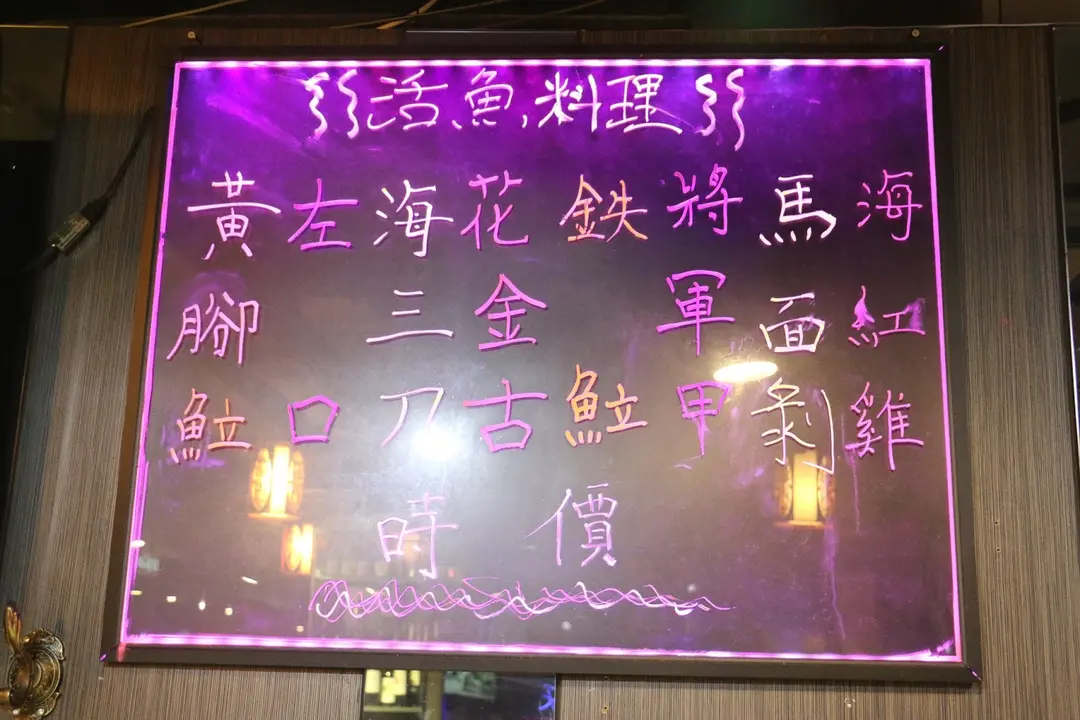 活魚料理
海紅雞
馬面剝
將軍甲
鉄𩶘
花金古
海三刀
左口
黃腳𩶘
時價